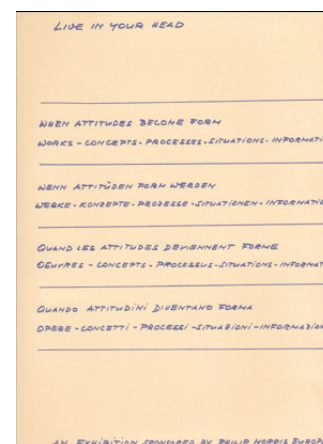 LIVE IN YOUR HEAD
WHEN ATTITUDES BECOME FORM
WORKS - CONCEPTS - PROCESSES - SITUATIONS - INFORMATI
WENN ATTITÜDEN FORM WERDEN
WERKE - KONZEPTE - PROZESSE - SITUATIONEN - INFORMATI
QUAND LES ATTITUDES DEVIENNENT FORME
OEUVRES - CONCEPTS - PROCESSUS - SITUATIONS - INFORMAT
QUANDO ATTITUDINI DIVENTANO FORMA
OPERE - CONCETTI - PROCESSI - SITUAZIONI - INFORMAZION
AN EXHIBITION SPONSORED BY PHILIP MORRIS EUROP